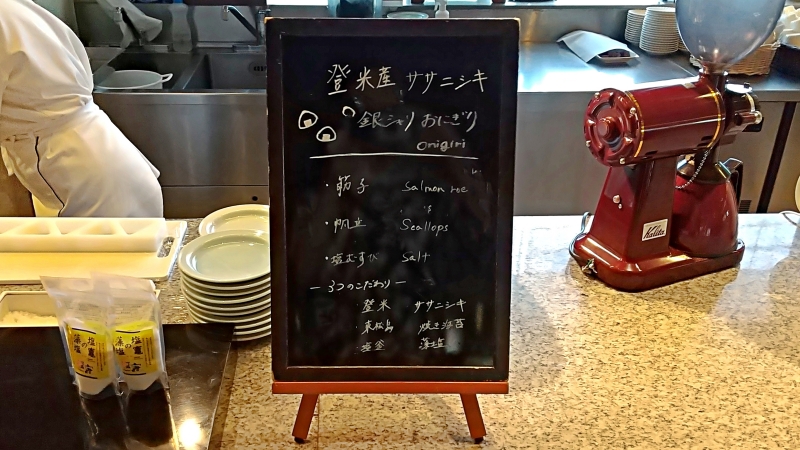 登米産 ササニシキ
銀シャリ おにぎり
onigiri
・筋子 Salmon roe
・帆立 Scallops
・塩むすび Salt
ー 3つのこだわり ー
・登米 ササニシキ
・東松島 焼き海苔
・塩釜 藻塩
Kalita
塩竈の藻塩
塩竈の藻塩